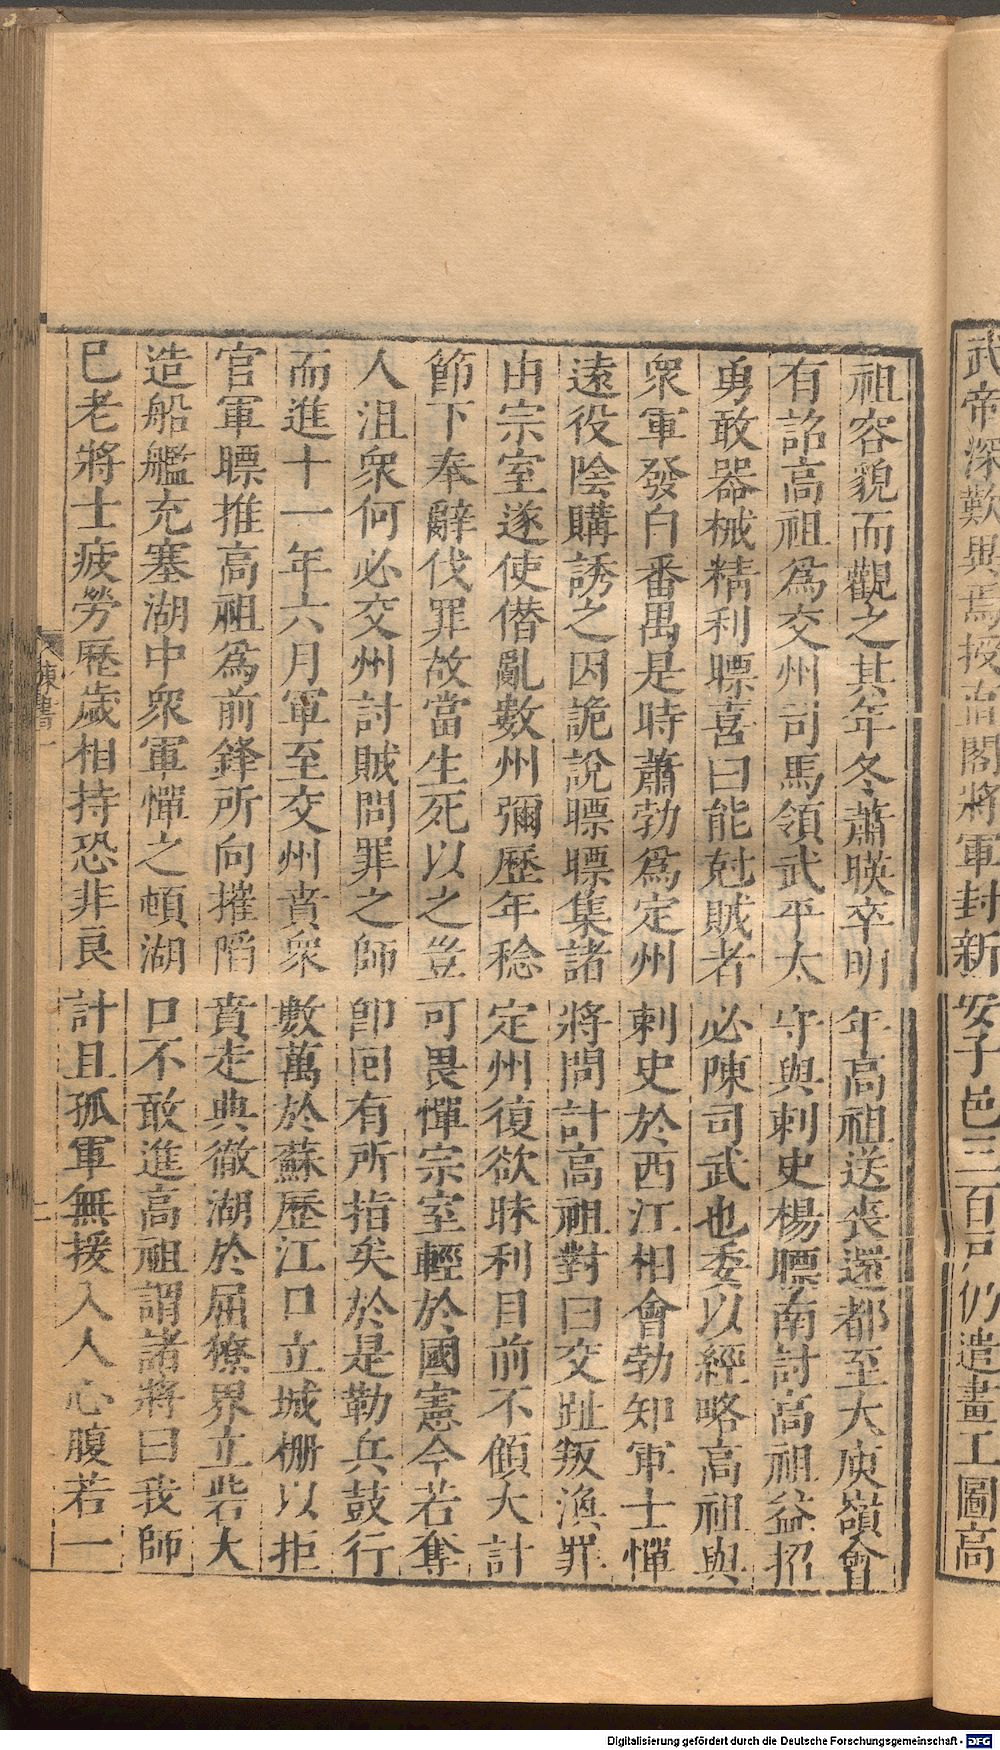 武帝深歎異焉授直閤將軍封新安子邑三百戶仍遣畫工圖高
祖容貌而觀之其年冬蕭暎卒明年高祖送喪還都至大庾嶺會
有詔高祖爲交州司馬領武平太守與刺史楊瞟南討高祖益招
勇敢器械精利瞟喜曰能尅賊者必陳司武也委以經略高祖與
衆軍發自番禺是時蕭勃爲定州刺史於西江相會勃知軍士憚
遠役陰購誘之因詭說瞟瞟集諸將問計高祖對曰交趾叛渙罪
由宗室遂使僭亂數州彌歷年稔定州復欲昧利目前不顧大計
節下奉辭伐罪故當生死以之豈可畏憚宗室輕於國憲今若奪
人沮衆何必交州討賊問罪之師卽回有所指矣於是勒兵鼓行
而進十一年六月軍至交州賁衆數萬於蘇歷江口立城柵以拒
官軍瞟推高祖爲前鋒所向摧陷賁走典徹湖於屈獠界立砦大
造船艦充塞湖中衆軍憚之頓湖口不敢進高祖謂諸將曰我師
巳老將士疲勞歷歲相持恐非良計且孤軍無援入人心腹若一
陳書一
二
Digitalisierung gefördert durch die Deutsche Forschungsgemeinschaft - DFG